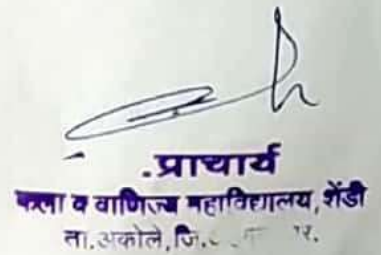 .प्राचार्य
कला व वाणिज्य महाविद्यालय, शेंडी
ता.अकोले, जि.